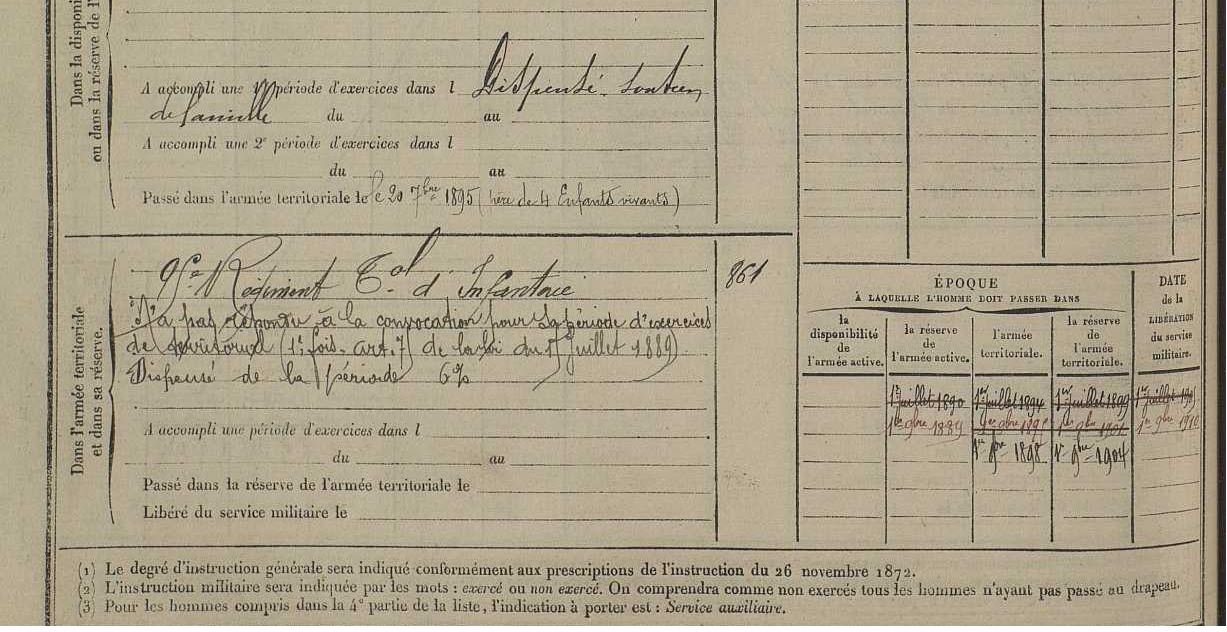 Dans la disponi
ou dans la réserve de l'
A accompli une 1re période d'exercices dans l Dispensé. soutien
de famille du au
A accompli une 2e période d'exercices dans l
du au
Passé dans l'armée territoriale le le 20 7bre 1895 (père de 4 Enfants vivants)
Dans l'armée territoriale
et dans sa réserve.
95e Régiment Tal d'Infanterie
861
N'a pas répondu à la convocation pour sa période d'exercices
de territorial (1e fois. art. 7) de la loi du 15 juillet 1889)
Dispensé de la période 6%
A accompli une période d'exercices dans l
du au
Passé dans la réserve de l'armée territoriale le
Libéré du service militaire le
ÉPOQUE
À LAQUELLE L'HOMME DOIT PASSER DANS
la
disponibilité
de
l'armée active.
la réserve
de
l'armée active.
l'armée
territoriale.
la réserve
de
l'armée
territoriale.
DATE
de la
LIBÉRATION
du service
militaire.
1er juillet 1890 1er juillet 1894 1er juillet 1899 1er juillet
1er 9bre 1889 1er 9bre 1er 9bre 1er 9bre 1910
1er 9bre 1898 1er 9bre 1904
(1) Le degré d'instruction générale sera indiqué conformément aux prescriptions de l'instruction du 26 novembre 1872.
(2) L'instruction militaire sera indiquée par les mots : exercé ou non exercé. On comprendra comme non exercés tous les hommes n'ayant pas passé au drapeau.
(3) Pour les hommes compris dans la 4e partie de la liste, l'indication à porter est : Service auxiliaire.